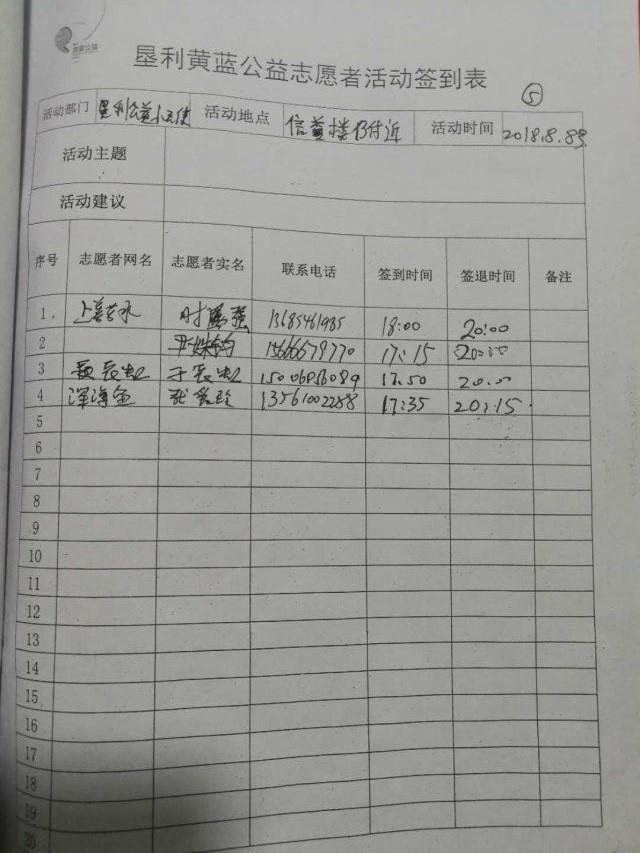 垦利黄蓝公益志愿者活动签到表
⑤
活动部门 垦利公益 活动地点 信益楼 附近 活动时间 2018.8.8
活动主题
活动建议
序号 志愿者网名 志愿者实名 联系电话 签到时间 签退时间 备注
1. 上善若水 13685461985 18:00 20:00
2 15666679770 17:15 20:00
3 15006856089 17:50 20:00
4 13561002288 17:35 20:15
5
6
7
8
9
10
11
12
13
14
15
16
17
18
19
20